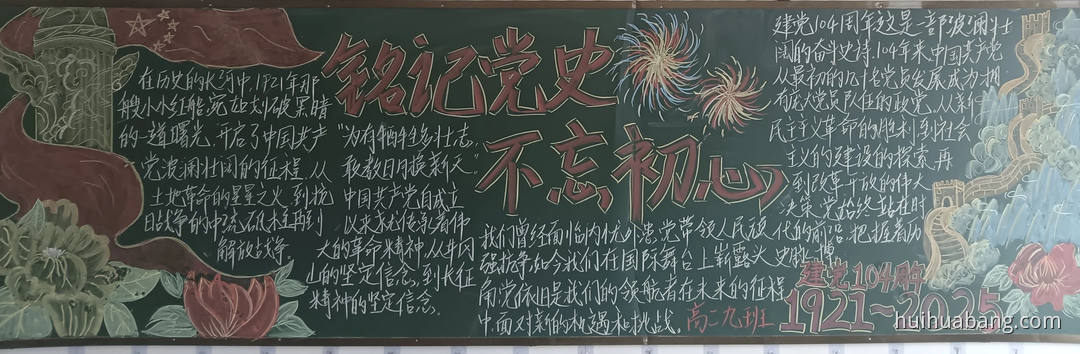 铭记党史
不忘初心
在历史的长河中,1921年那
艘小小红船,宛如划破黑暗
的一道曙光,开启了中国共产
党波澜壮阔的征程,从
土地革命的星星之火,到抗
日战争的中流砥柱再到
解放战争
“为有牺牲多壮志,
敢教日月换新天”
中国共产党自成立
以来,就传承着伟
大的革命精神,从井冈
山的坚定信念,到长征
精神的坚定信念。
我们曾经面临内忧外患,党带领人民顽
强抗争,如今我们在国际舞台上崭露头
角,党依旧是我们的领航者,在未来的征程
中面对新的机遇和挑战。
高二九班
建党104周年,这是一部波澜壮
阔的奋斗史诗.104年来中国共产党
从最初的几十名党员发展成为拥
有庞大党员队伍的政党,从新
民主主义革命的胜利,到社会
主义的建设的探索,再
到改革开放的伟大
决策,党始终站在时
代的前沿,把握着历
史脉搏
建党104周年
1921~2025
huihuabang.com